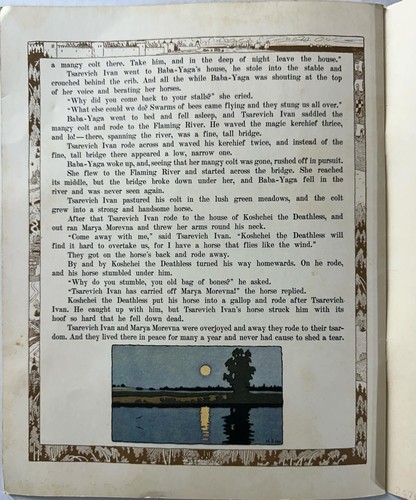 a mangy colt there. Take him, and in the deep of night leave the house."
Tsarevich Ivan went to Baba-Yaga's house, he stole into the stable and
crouched behind the crib. And all the while Baba-Yaga was shouting at the top
of her voice and berating her horses.
"Why did you come back to your stalls?" she cried.
"What else could we do? Swarms of bees came flying and they stung us all over."
Baba-Yaga went to bed and fell asleep, and Tsarevich Ivan saddled the
mangy colt and rode to the Flaming River. He waved the magic kerchief thrice,
and lo!—there, spanning the river, was a fine, tall bridge.
Tsarevich Ivan rode across and waved his kerchief twice, and instead of the
fine, tall bridge there appeared a low, narrow one.
Baba-Yaga woke up, and, seeing that her mangy colt was gone, rushed off in pursuit.
She flew to the Flaming River and started across the bridge. She reached
its middle, but the bridge broke down under her, and Baba-Yaga fell in the
river and was never seen again.
Tsarevich Ivan pastured his colt in the lush green meadows, and the colt
grew into a strong and handsome horse.
After that Tsarevich Ivan rode to the house of Koshchei the Deathless, and
out ran Marya Morevna and threw her arms round his neck.
"Come away with me," said Tsarevich Ivan. "Koshchei the Deathless will
find it hard to overtake us, for I have a horse that flies like the wind."
They got on the horse's back and rode away.
By and by Koshchei the Deathless turned his way homewards. On he rode,
and his horse stumbled under him.
"Why do you stumble, you old bag of bones?" he asked.
"Tsarevich Ivan has carried off Marya Morevna!" the horse replied.
Koshchei the Deathless put his horse into a gallop and rode after Tsarevich
Ivan. He caught up with him, but Tsarevich Ivan's horse struck him with its
hoof so hard that he fell down dead.
Tsarevich Ivan and Marya Morevna were overjoyed and away they rode to their tsar-
dom. And they lived there in peace for many a year and never had cause to shed a tear.